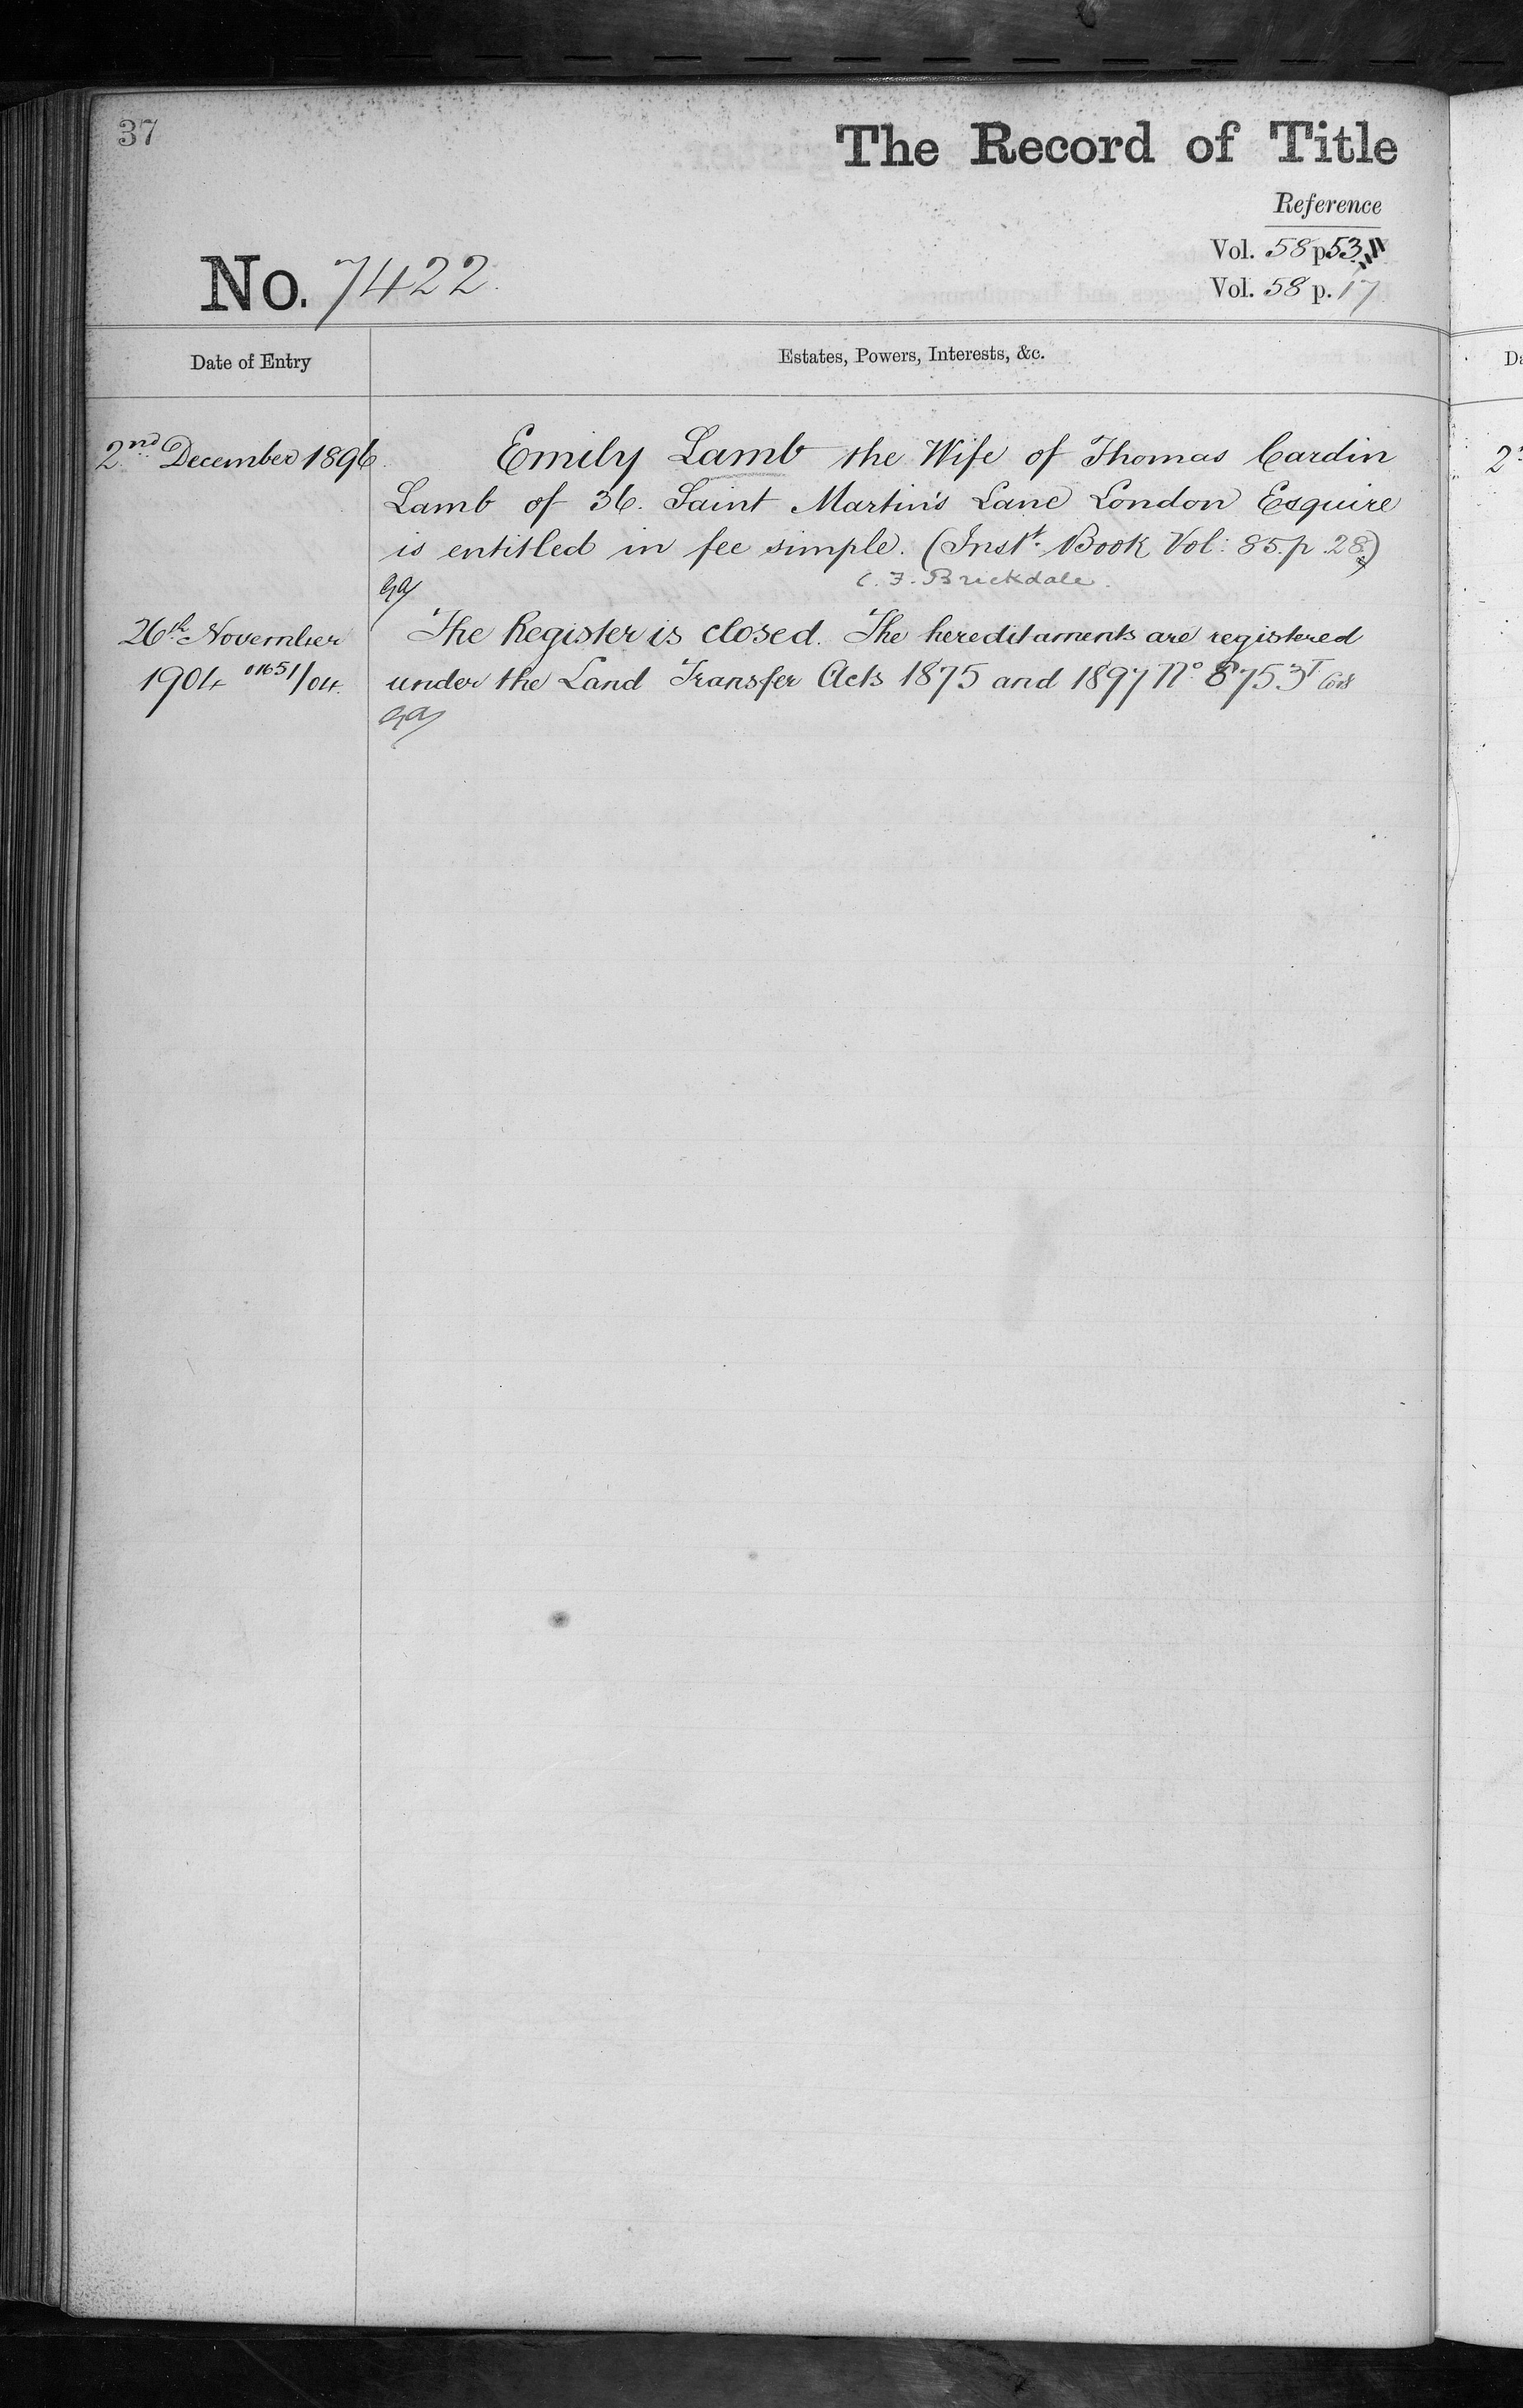 37
The Record of Title
Reference
Vol. 58 p 53
Vol. 58 p. 17
No. 7422.
Date of Entry
Estates, Powers, Interests, &c.
2nd December 1896.
Emily Lamb the Wife of Thomas Cardin
Lamb of 36. Saint Martin's Lane London Esquire
is entitled in fee simple. (Inst. Book Vol: 85. p. 28)
C. F. Brickdale.
26th November
1904 01651/04.
The Register is closed. The hereditaments are registered
under the Land Transfer Acts 1875 and 1897 No. 8753